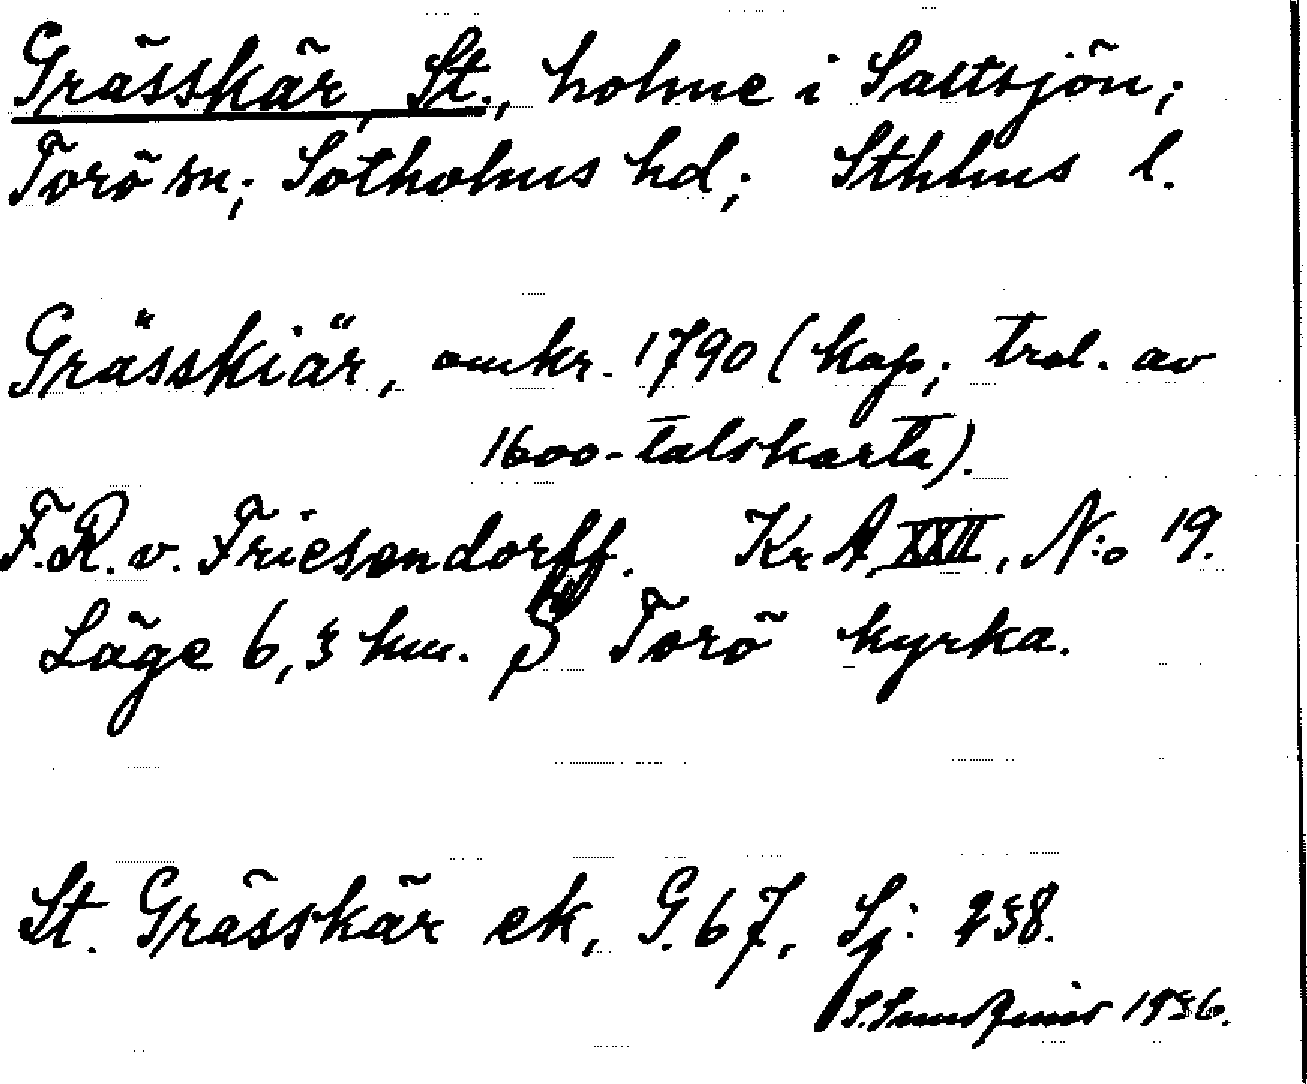 Grässkär, St., holme i Saltsjön;
Torö sn; Sotholms hd; Sthlms l.
Grässkiär, omkr. 1790 (kop; trol. av
1600-talskarta).
F.R. v. Friesendorff. KrA, XXII, N:o 19.
Läge 6,3 km. S Torö kyrka.
St. Grässkär ek, G. 67, Sj: 238.
1936.